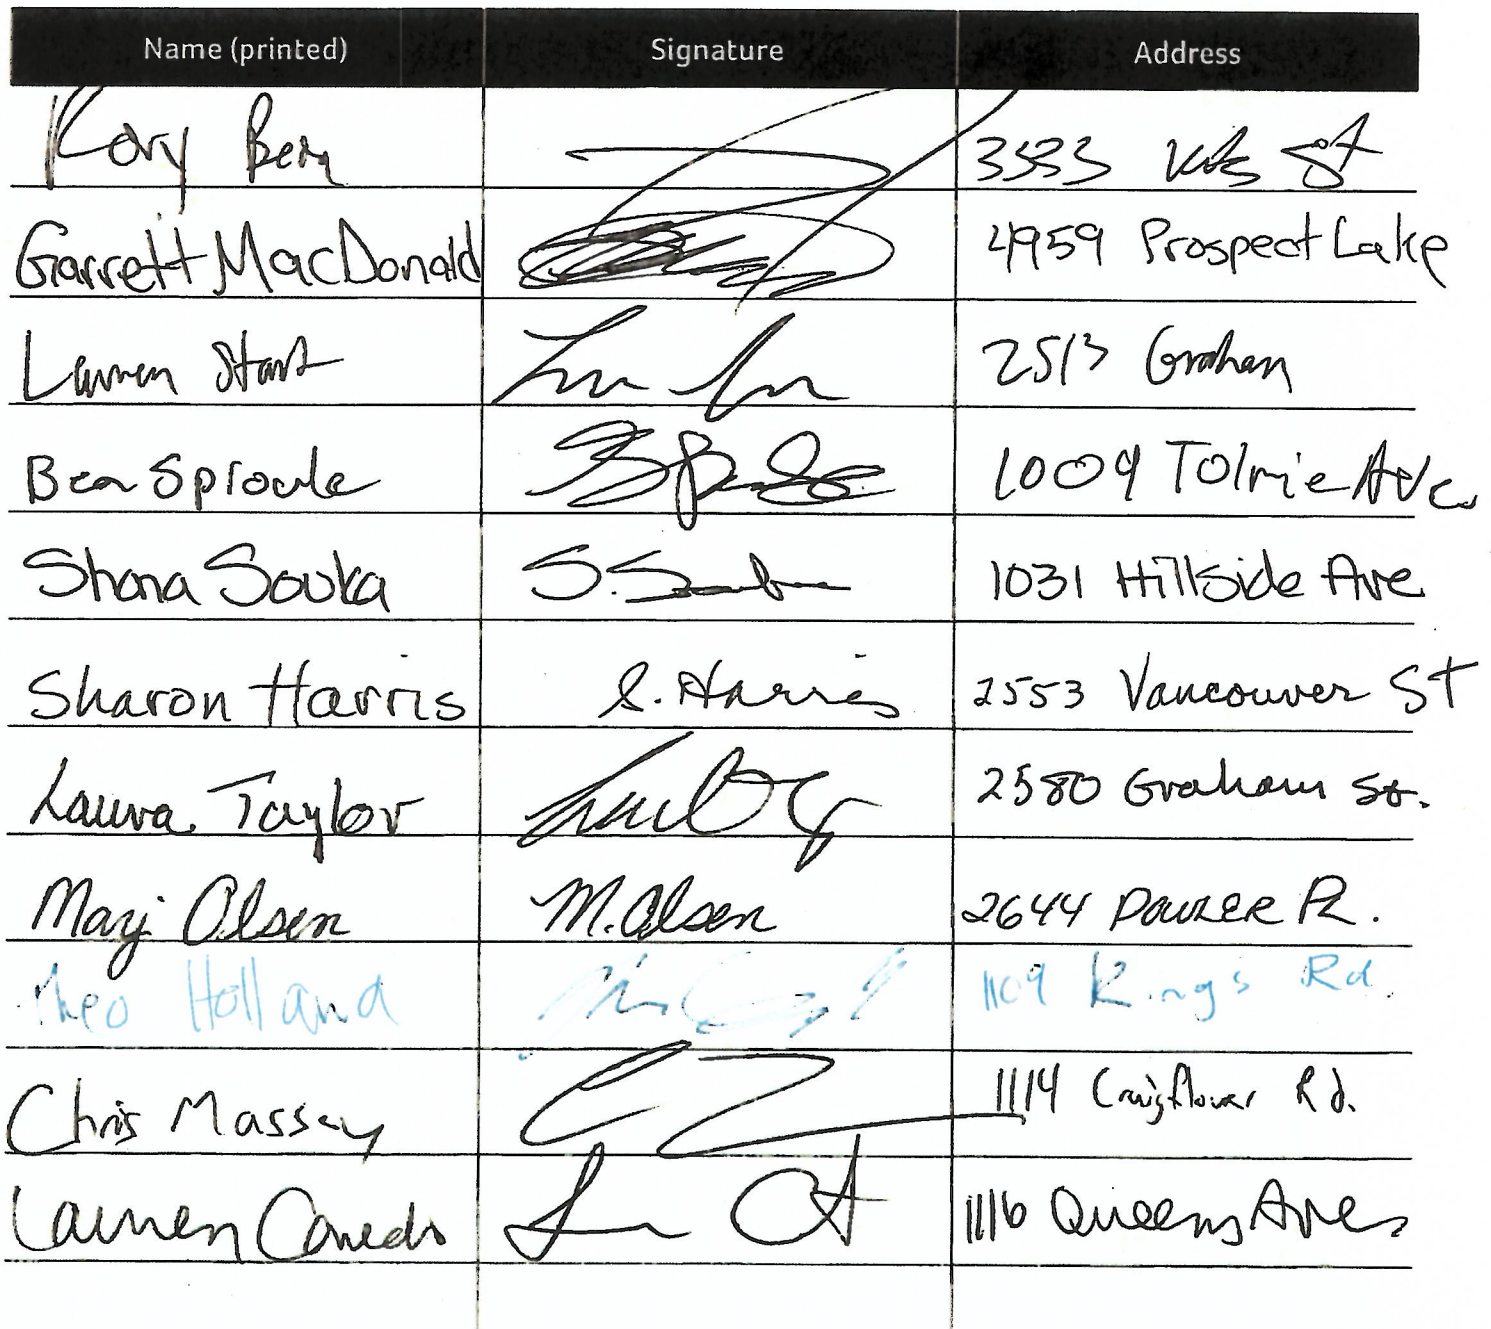 Name (printed) Signature Address
Rory 3533 St
Garrett MacDonald 4959 Prospect Lake
Lauren Start 2513 Graham
Ben Sproule 1009 Tolmie Ave
Shana Souka S. 1031 Hillside Ave
Sharon Harris S. Harris 2553 Vancouver St
Laura Taylor 2580 Graham St.
Marj Olsen M. Olsen 2644 PR.
Theo Holland 1109 Kings Rd.
Chris Massey 1114 Craigflower Rd.
Lauren 1116 Queens Ave